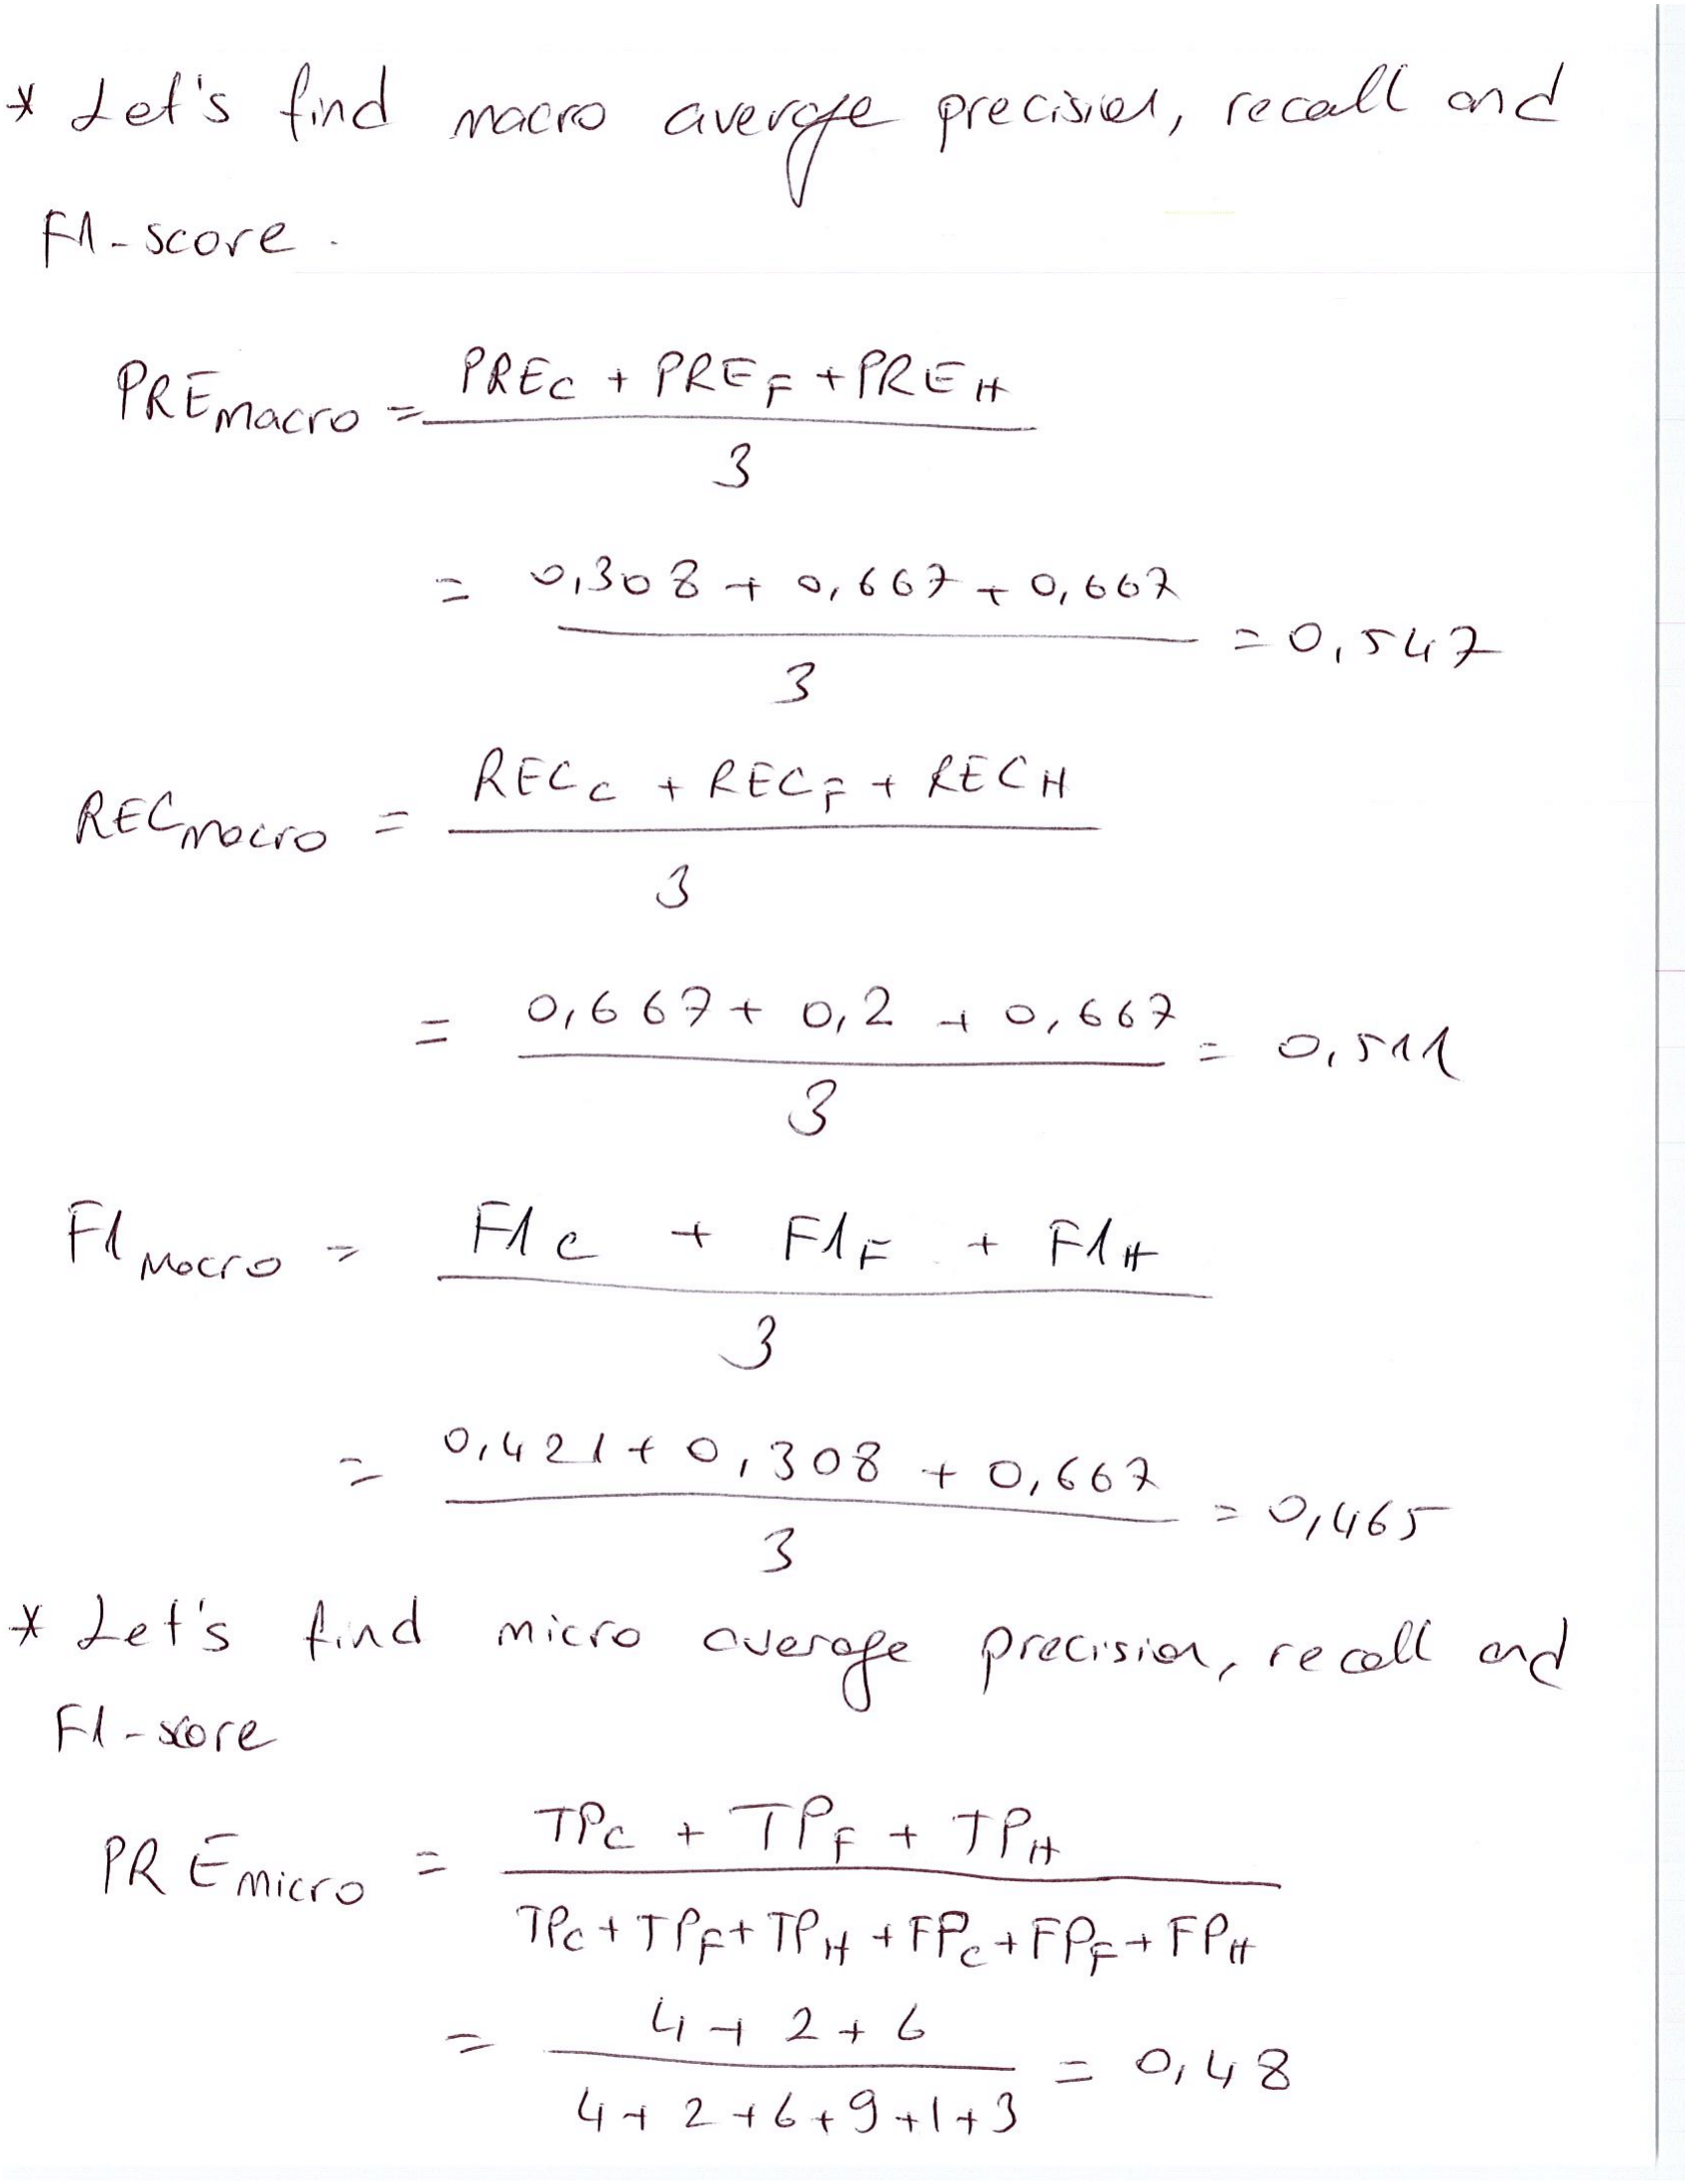 * Let's find macro average precision, recall and
F1-score.
PREmacro = PREC + PREF + PREH
3
= 0,308 + 0,667 + 0,667 = 0,547
3
RECmacro = RECC + RECF + RECH
3
= 0,667 + 0,2 + 0,667 = 0,511
3
F1 Macro = F1C + F1F + F1H
3
= 0,421 + 0,308 + 0,667 = 0,465
3
* Let's find micro average precision, recall and
F1-score
PREmicro = TPC + TPF + TPH
TPC + TPF + TPH + FPC + FPF + FPH
= 4 + 2 + 6 = 0,48
4 + 2 + 6 + 9 + 1 + 3